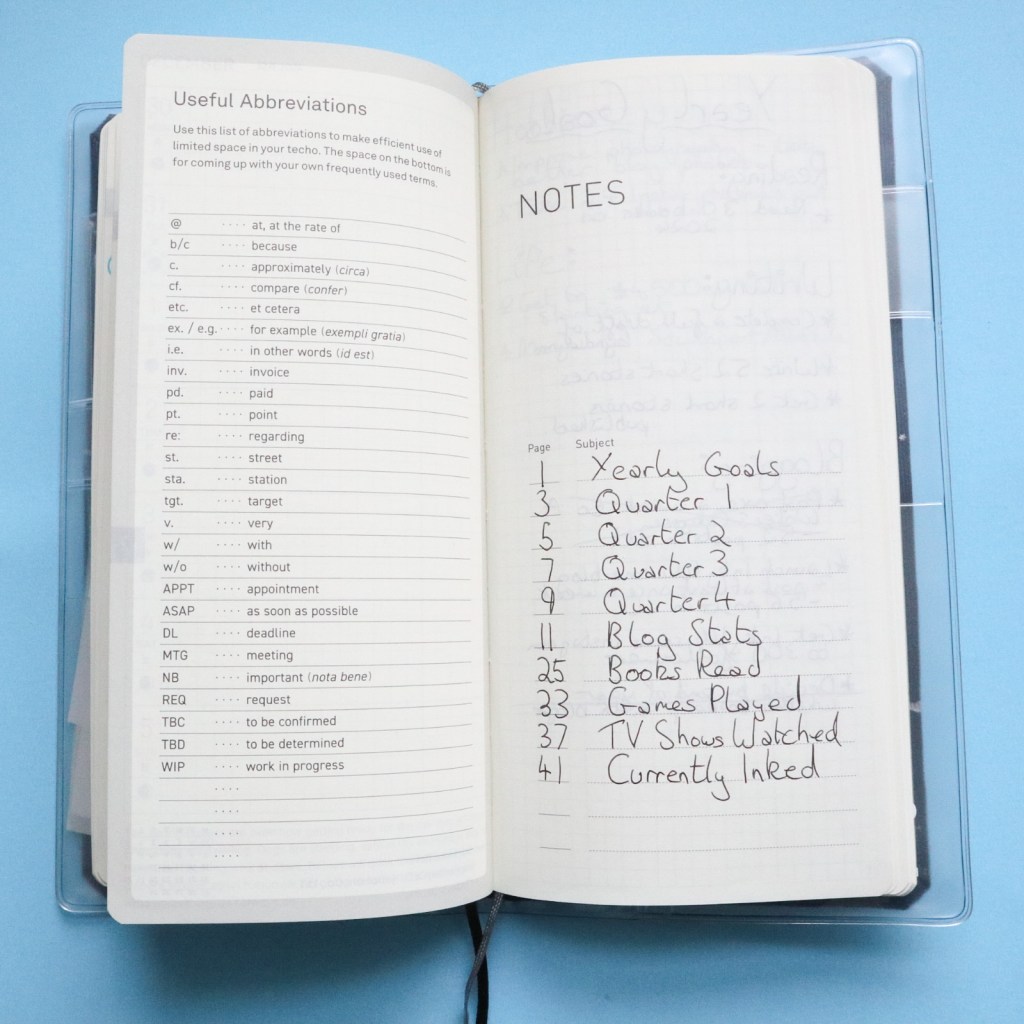 Useful Abbreviations
Use this list of abbreviations to make efficient use of
limited space in your techo. The space on the bottom is
for coming up with your own frequently used terms.
@ ···· at, at the rate of
b/c ···· because
c. ···· approximately (circa)
cf. ···· compare (confer)
etc. ···· et cetera
ex. / e.g. ···· for example (exempli gratia)
i.e. ···· in other words (id est)
inv. ···· invoice
pd. ···· paid
pt. ···· point
re: ···· regarding
st. ···· street
sta. ···· station
tgt. ···· target
v. ···· very
w/ ···· with
w/o ···· without
APPT ···· appointment
ASAP ···· as soon as possible
DL ···· deadline
MTG ···· meeting
NB ···· important (nota bene)
REQ ···· request
TBC ···· to be confirmed
TBD ···· to be determined
WIP ···· work in progress
····
····
····
····
NOTES
Page Subject
1 Yearly Goals
3 Quarter 1
5 Quarter 2
7 Quarter 3
9 Quarter 4
11 Blog Stats
25 Books Read
33 Games Played
37 TV Shows Watched
41 Currently Inked